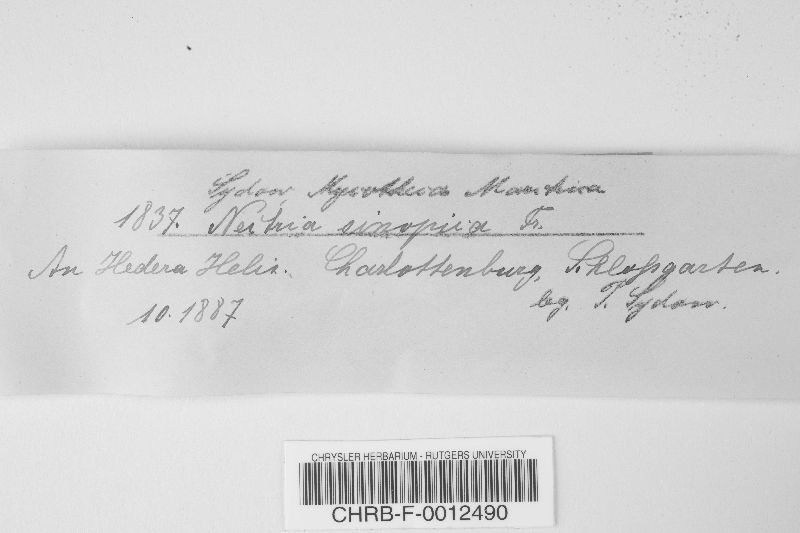 Sydow, Mycotheca Marchica
1837. Nectria sinopica Fr.
An Hedera Helix. Charlottenburg, Schloßgarten.
10.1887
leg. P. Sydow.
CHRYSLER HERBARIUM - RUTGERS UNIVERSITY
CHRB-F-0012490